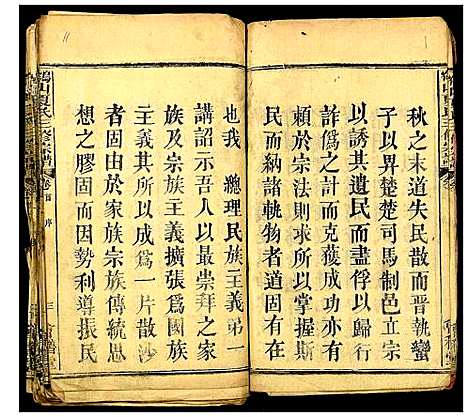 秋之末道失民散而晉執蠻
子以畀楚楚司馬制邑立宗
以誘其遺民而盡俘以歸行
詐之計而克獲成功亦有
賴於宗法則所以掌握斯
民而納諸軌物者道固有在
也我 總理民族主義第一
講詔示吾人以最崇拜之家
族及宗族主義擴張爲國族
主義所以成爲一片散沙
者固由於家族宗族傳統思
想之膠固而因勢利導振民
山夏氏三修宗譜
卷首 序